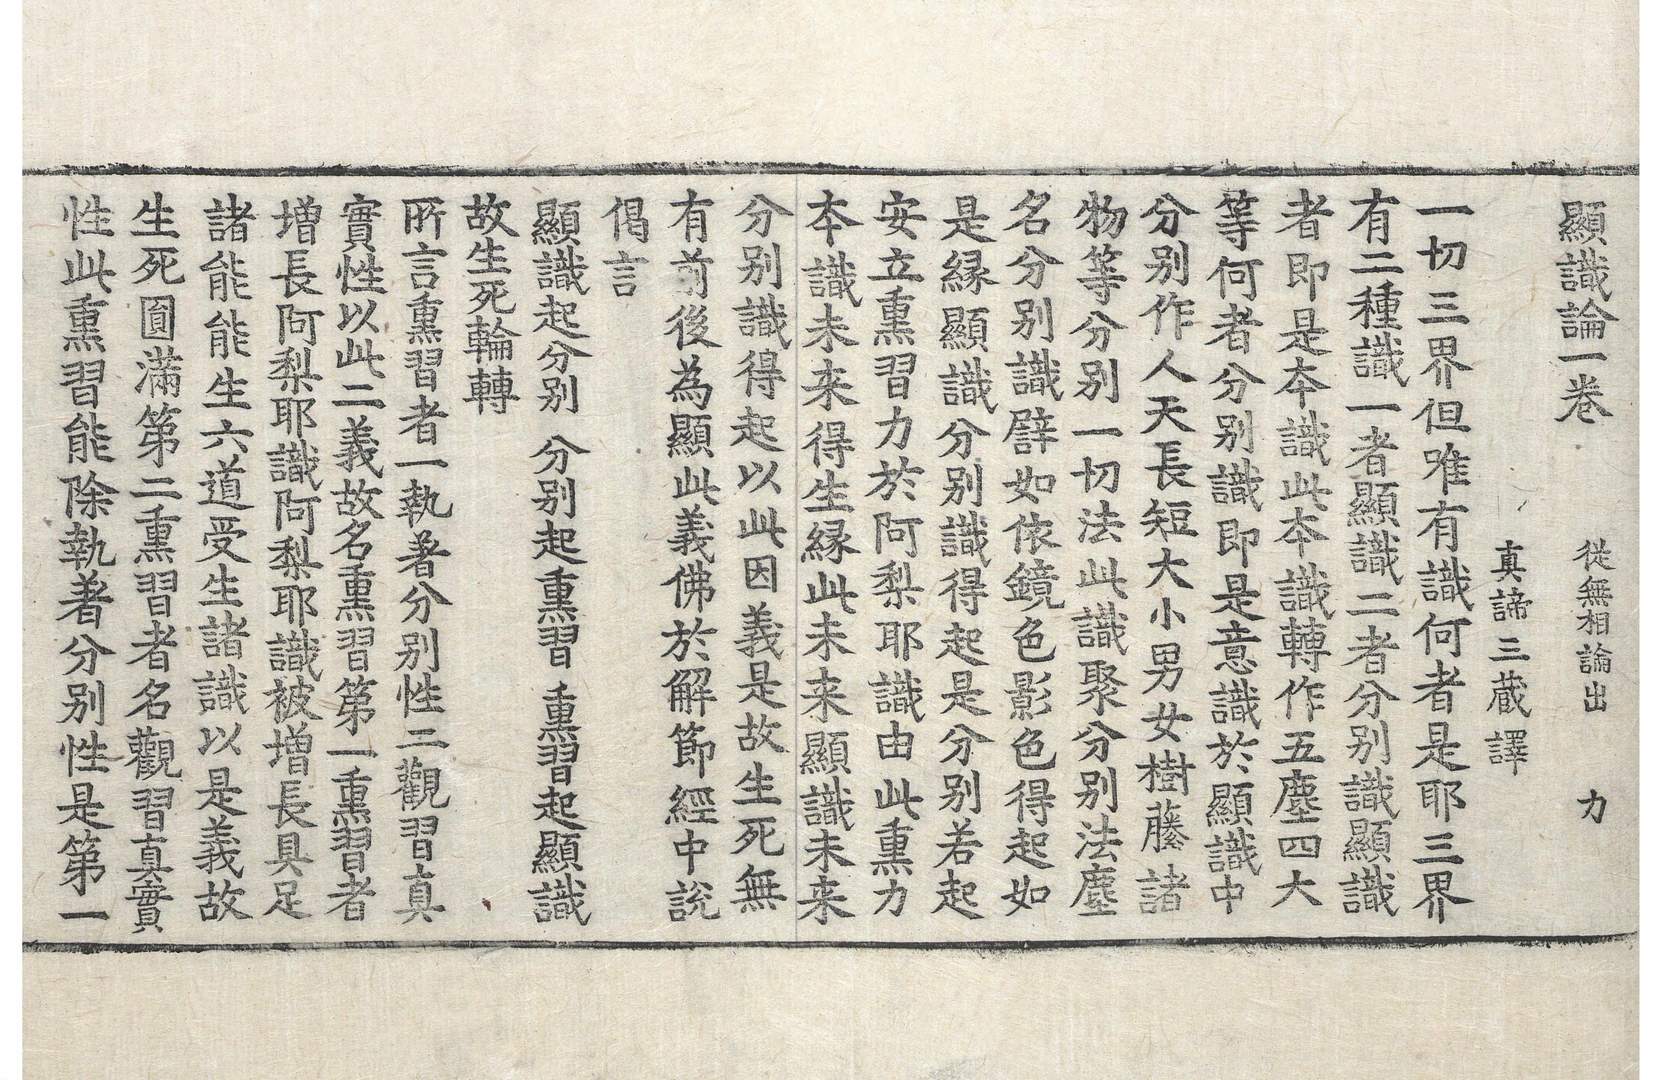 顯識論一卷 從無相論出 力
真諦三藏譯
一切三界但唯有識何者是耶三界
有二種識一者顯識二者分别識顯識
者即是夲識此夲識轉作五塵四大
等何者分别識即是意識於顯識中
分别作人天長短大小男女樹藤諸
物等分别一切法此識聚分别法塵
名分别識譬如依鏡色影色得起如
是縁顯識分别識得起是分别若起
安立熏習力於阿梨耶識由此熏力
夲識未来得生縁此未来顯識未来
分别識得起以此因義是故生死無
有前後為顯此義佛於解節經中說
偈言
顯識起分别 分别起熏習 熏習起顯識
故生死輪轉
所言熏習者一執著分别性二觀習真
實性以此二義故名熏習第一熏習者
增長阿梨耶識阿梨耶識被增長具足
諸能能生六道受生諸識以是義故
生死圓滿第二熏習者名觀習真實
性此熏習能除執著分别性是第一